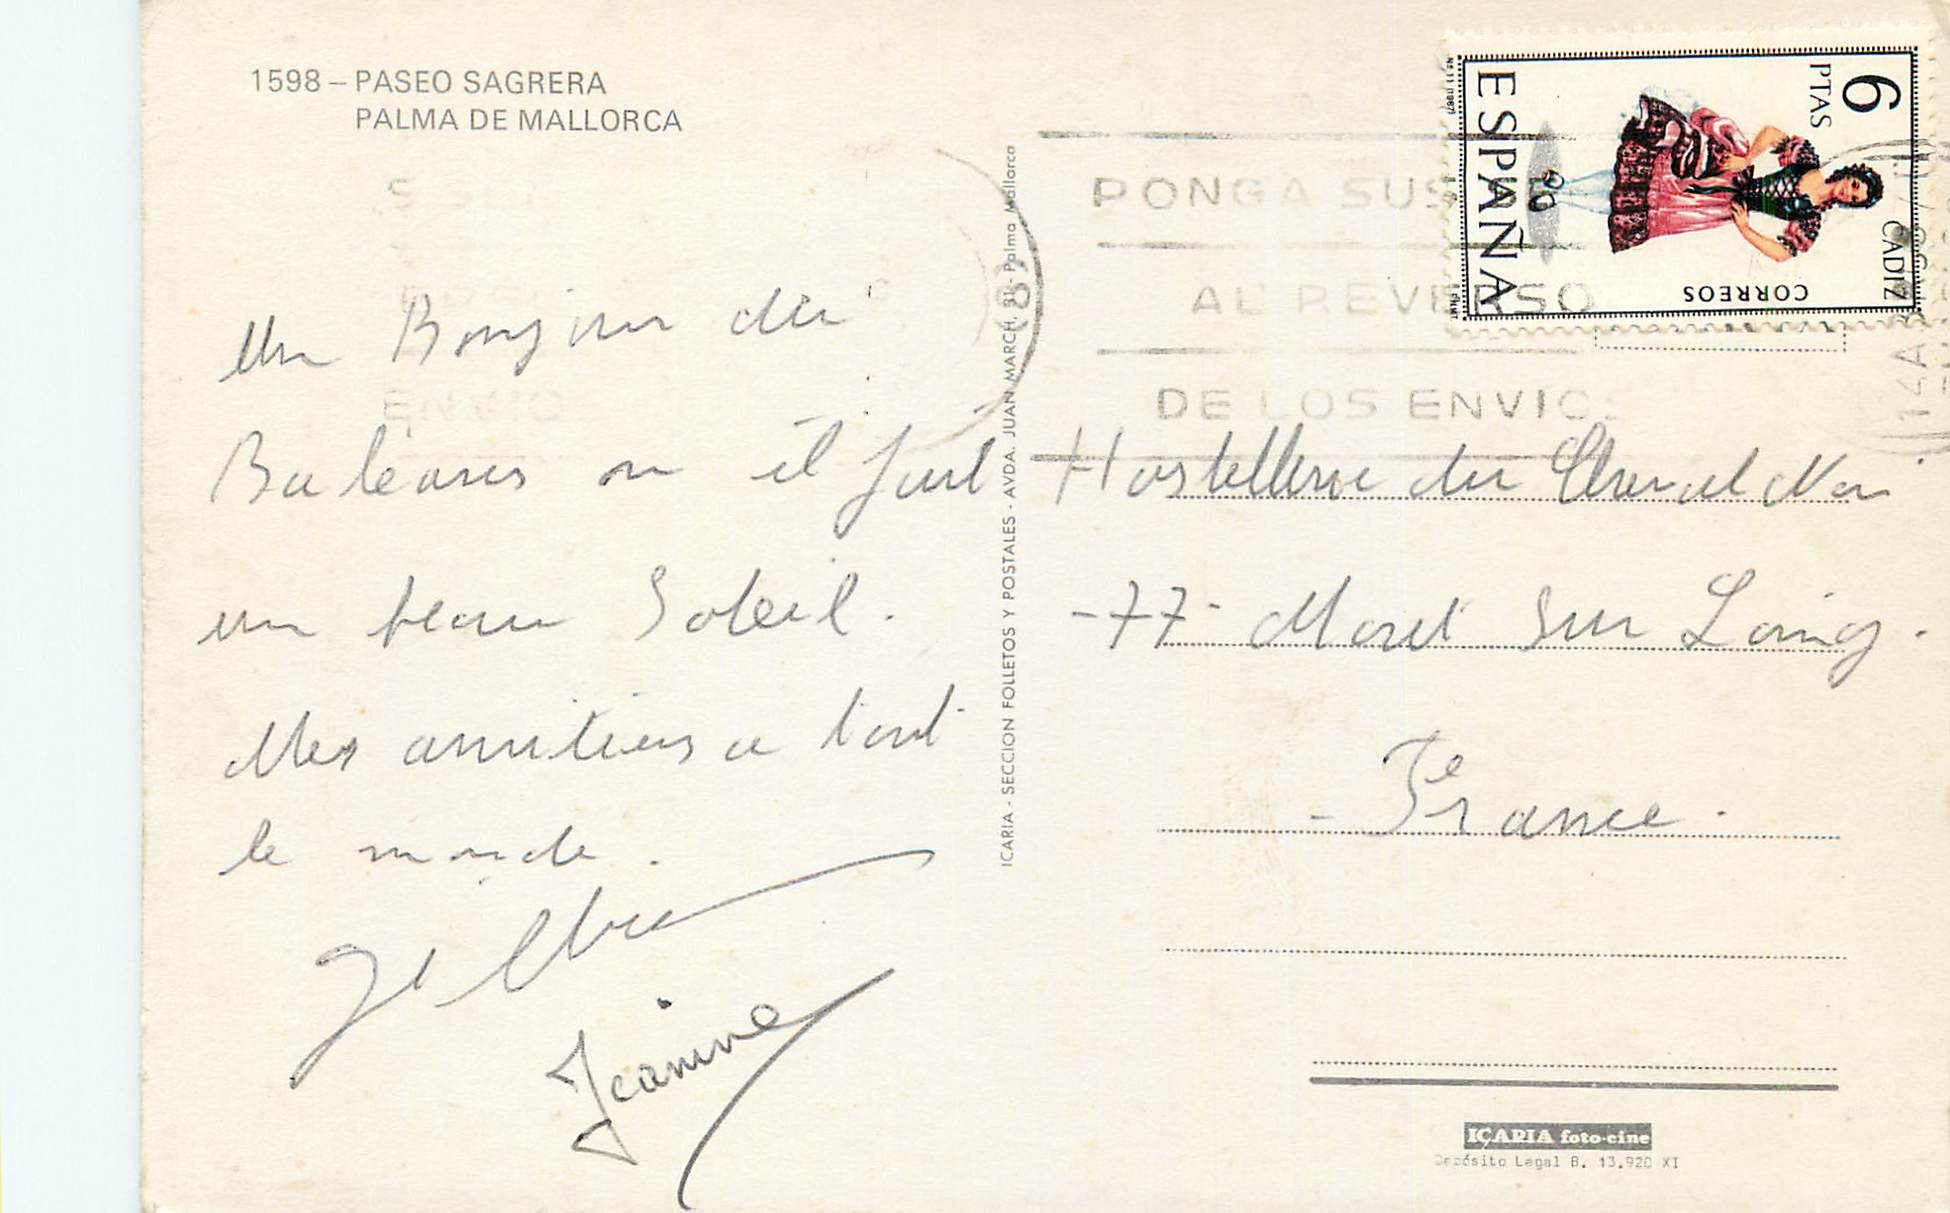 1598 – PASEO SAGRERA
PALMA DE MALLORCA
Un Bonjour du
Baléares ou il fait
un beau Soleil.
Mes amitiers a tout
le monde.
Jeanine
ICARIA - SECCION FOLLETOS Y POSTALES - AVDA. JUAN MARCH, Palma Mallorca
PONGA SUS
AL REVERSO
DE LOS ENVIOS
6
PTAS
ESPAÑA
CORREOS
CADIZ
Hostellerie du Cheval Noir
-77- Moret Sur Loing.
- France.
ICARIA foto-cine
Depósito Legal B. 13.920 XI